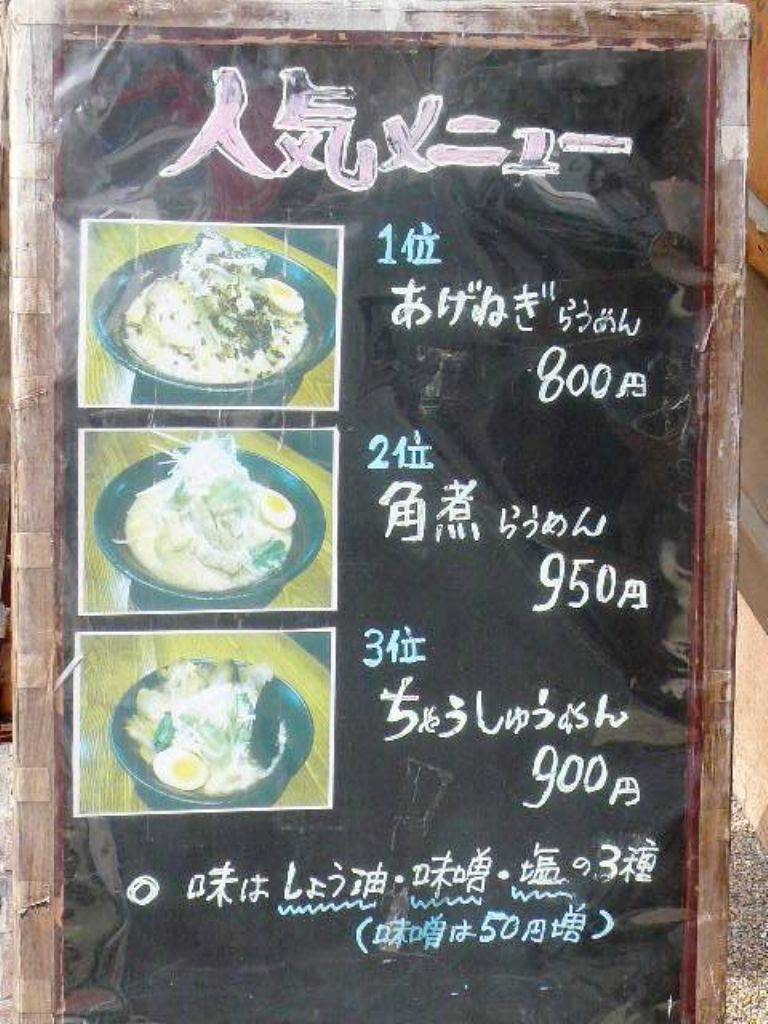 人気メニュー
1位
あげねぎらうめん
800円
2位
角煮らうめん
950円
3位
ちゃうしゅうめん
900円
○ 味はしょう油・味噌・塩の3種
（味噌は50円増）